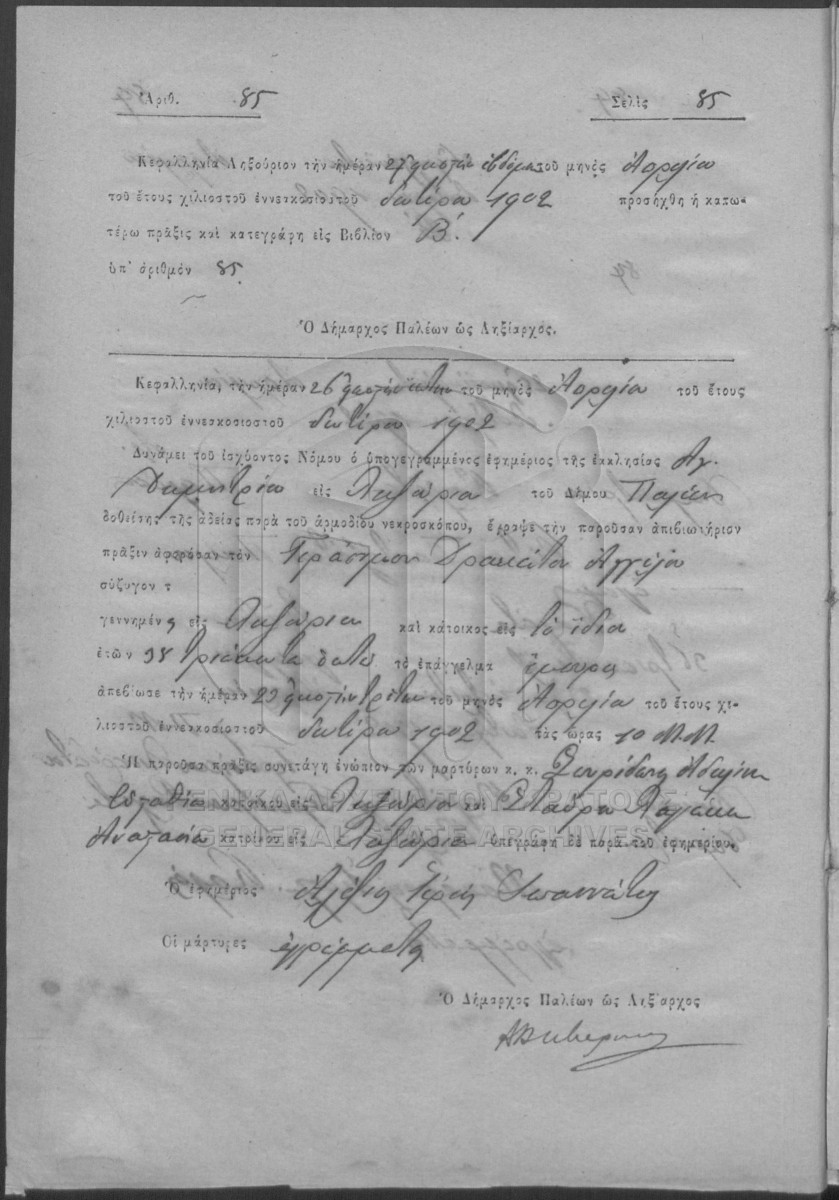 Ἀριθ. 85 Σελὶς 85
Κεφαλληνία Ληξούριον τὴν ἡμέραν 27 εἰκοστὴν ἑβδόμην τοῦ μηνὸς Ἀπριλίου
τοῦ ἔτους χιλιοστοῦ ἐννεακοσιοστοῦ δευτέρου 1902 προσήχθη ἡ κατω-
τέρω πρᾶξις καὶ κατεγράφη εἰς Βιβλίον Β΄.
ὑπ' ἀριθμὸν 85.
Ὁ Δήμαρχος Παλέων ὡς Ληξίαρχος.
Κεφαλληνία, τὴν ἡμέραν 26 εἰκοστὴν ἕκτην τοῦ μηνὸς Ἀπριλίου τοῦ ἔτους
χιλιοστοῦ ἐννεακοσιοστοῦ δευτέρου 1902
Δυνάμει τοῦ ἰσχύοντος Νόμου ὁ ὑπογεγραμμένος ἐφημέριος τῆς ἐκκλησίας Ἁγ.
Δημητρίου εἰς Ληξούριον τοῦ Δήμου Παλέων
δοθείσης τῆς ἀδείας παρὰ τοῦ ἁρμοδίου νεκροσκόπου, ἔγραψε τὴν παροῦσαν ἀπιβιωτήριον
πρᾶξιν ἀφορῶσαν τὸν Γεράσιμον Δρακάτον Ἀγγέλου
σύζυγον τ
γεννημένος εἰς Ληξούριον καὶ κάτοικος εἰς τὸ ἴδιον
ἐτῶν 38 τριάκοντα ὀκτώ τὸ ἐπάγγελμα
ἀπεβίωσε τὴν ἡμέραν 23 εἰκοστὴν τρίτην τοῦ μηνὸς Ἀπριλίου τοῦ ἔτους χι-
λιοστοῦ ἐννεακοσιοστοῦ δευτέρου 1902 τὰς ὥρας 10 Μ.Μ.
Ἡ παροῦσα πρᾶξις συνετάγη ἐνώπιον τῶν μαρτύρων κ. κ. Σπυρίδωνος
Εὐσταθίου κατοίκου εἰς Ληξούριον καὶ Σταύρου
Ἀναστασίου κατοίκου εἰς Ληξούριον ὑπεγράφη δὲ παρὰ τοῦ ἐφημερίου.
ΓΕΝΙΚΑ ΑΡΧΕΙΑ ΤΟΥ ΚΡΑΤΟΥΣ
GENERAL STATE ARCHIVES
Ὁ ἐφημέριος Ἀλέξιος Ἱερεὺς
Οἱ μάρτυρες ἀγράμματοι
Ὁ Δήμαρχος Παλέων ὡς Ληξίαρχος